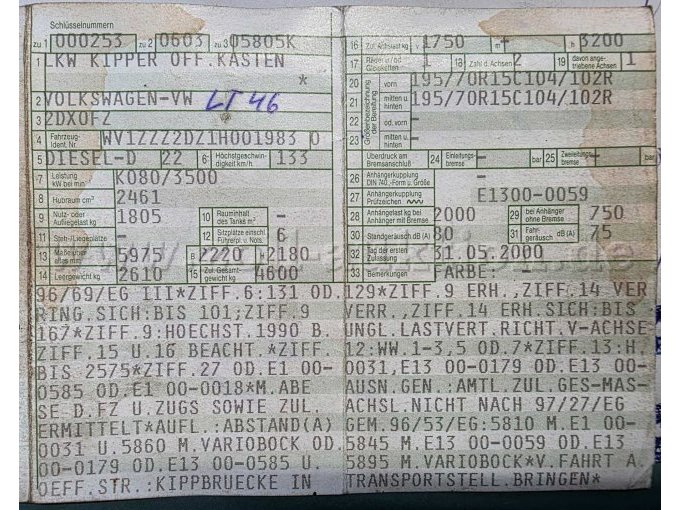 Schlüsselnummern
zu 1 000253 zu 2 0603 zu 3 05805K
1 LKW KIPPER OFF.KASTEN
*
2 VOLKSWAGEN-VW LT 46
3 2DXOFZ
4 Fahrzeug-Ident. Nr. WV1ZZZ2DZ1H001983 0
5 DIESEL-D 22 6 Höchstgeschwindigkeit km/h 133
7 Leistung kW bei min K080/3500
8 Hubraum cm³ 2461
9 Nutz- oder Aufliegelast kg 1805 10 Rauminhalt des Tanks m³ -
11 Steh-/Liegeplätze - 12 Sitzplätze einschl. Führerpl. u. Nots. 6
13 Maße über alles mm L 5975 B 2220 H 2180
14 Leergewicht kg 2610 15 Zul. Gesamtgewicht kg 4600
96/69/EG III*ZIFF.6:131 OD.
RING.SICH:BIS 101;ZIFF.9
167*ZIFF.9:HOECHST.1990 B.
ZIFF.15 U.16 BEACHT.*ZIFF.
BIS 2575*ZIFF.27 OD.E1 00-
0585 OD.E1 00-0018*M.ABE
SE D.FZ U.ZUGS SOWIE ZUL.
ERMITTELT*AUFL.:ABSTAND(A)
0031 U.5860 M.VARIOBOCK OD.
00-0179 OD.E13 00-0585 U.
OEFF.STR.:KIPPBRUECKE IN
16 Zul. Achslast kg v 1750 m - h 3200
17 Räder u./od. Gleisketten 1 18 Zahl d. Achsen 2 19 davon angetriebene Achsen 1
Größenbezeichnung der Bereifung
20 vorn 195/70R15C104/102R
21 mitten u. hinten 195/70R15C104/102R
22 od. vorn -
23 mitten u. hinten -
Überdruck am Bremsanschluß 24 Einleitungsbremse - bar 25 Zweileitungsbremse - bar
26 Anhängerkupplung DIN 740.,-Form u. Größe -
27 Anhängerkupplung Prüfzeichen E1300-0059
28 Anhängelast kg bei Anhänger mit Bremse 2000 29 bei Anhänger ohne Bremse 750
30 Standgeräusch dB (A) 80 31 Fahrgeräusch dB (A) 75
32 Tag der ersten Zulassung 31.05.2000
33 Bemerkungen FARBE: -
129*ZIFF.9 ERH.,ZIFF.14 VER
VERR.,ZIFF.14 ERH.SICH:BIS
UNGL.LASTVERT.RICHT.V-ACHSE
12:WW.1-3,5 OD.7*ZIFF.13:H.
0031,E13 00-0179 OD.E13
AUSN.GEN.:AMTL.ZUL.GES-MAS-
ACHSL.NICHT NACH 97/27/EG
GEM.96/53/EG:5810 M.E1 00-
5845 M.E13 00-0059 OD.E13
5895 M.VARIOBOCK*V.FAHRT A.
TRANSPORTSTELL.BRINGEN*